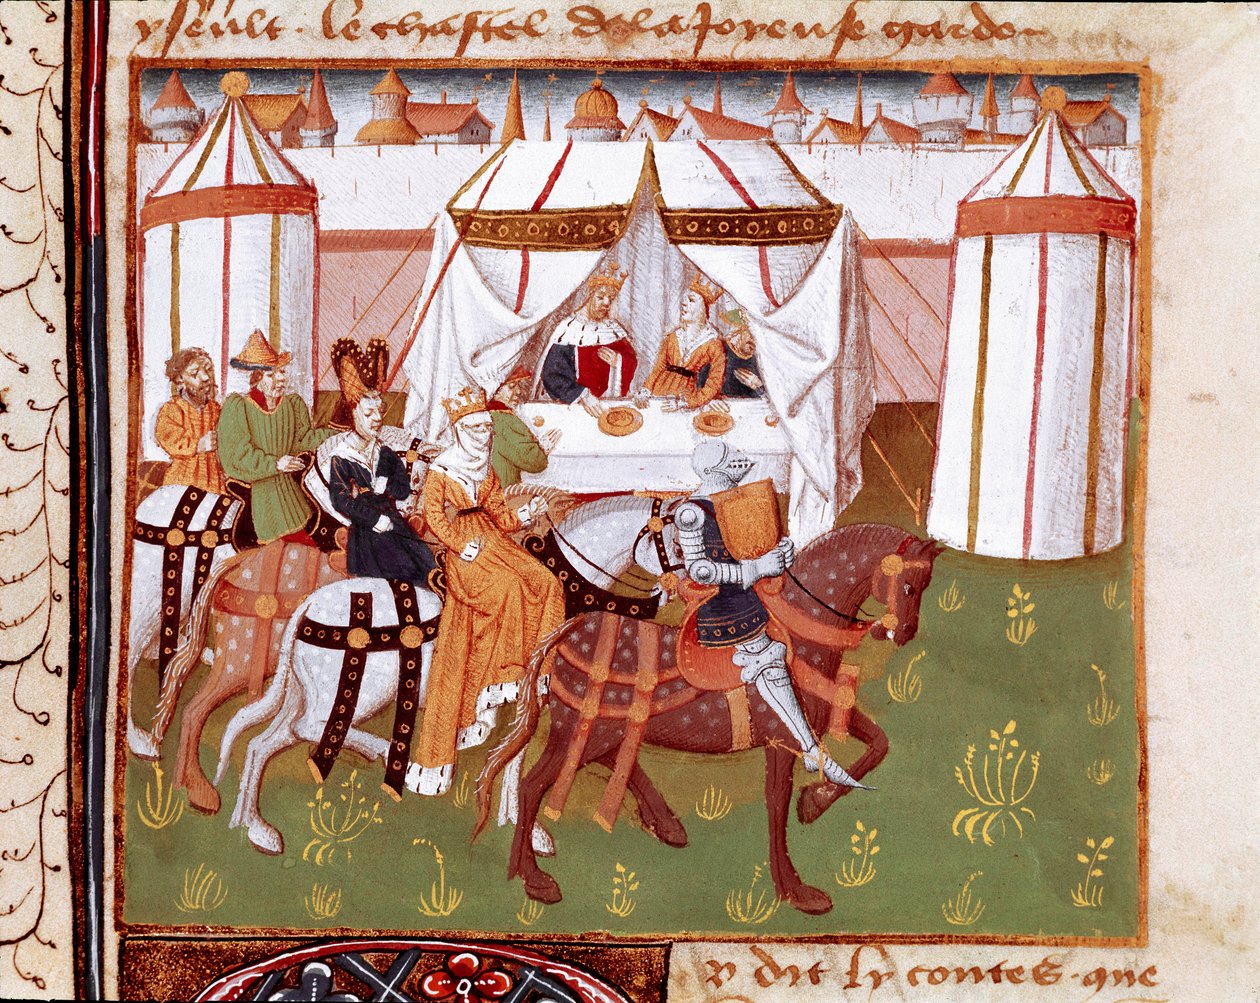 yseult . le chastel de la Joyeuse garde
Or dit ly contes . que